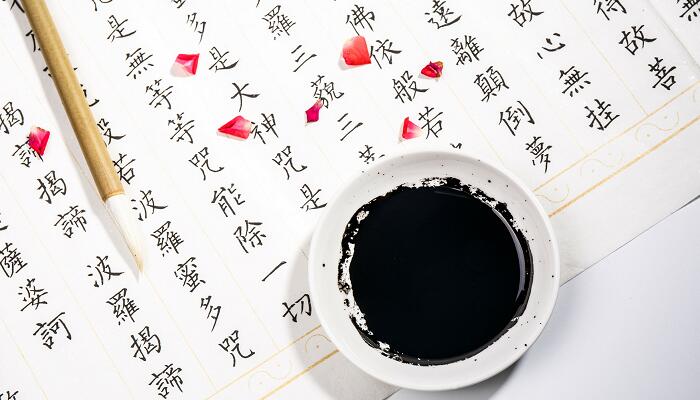 得故菩
故心無挂
遠離顛倒夢
佛依般若
羅三藐三
多是大神咒是
是無等等咒能除一切
般若波羅蜜多咒
揭諦揭諦波羅揭諦
薩婆訶